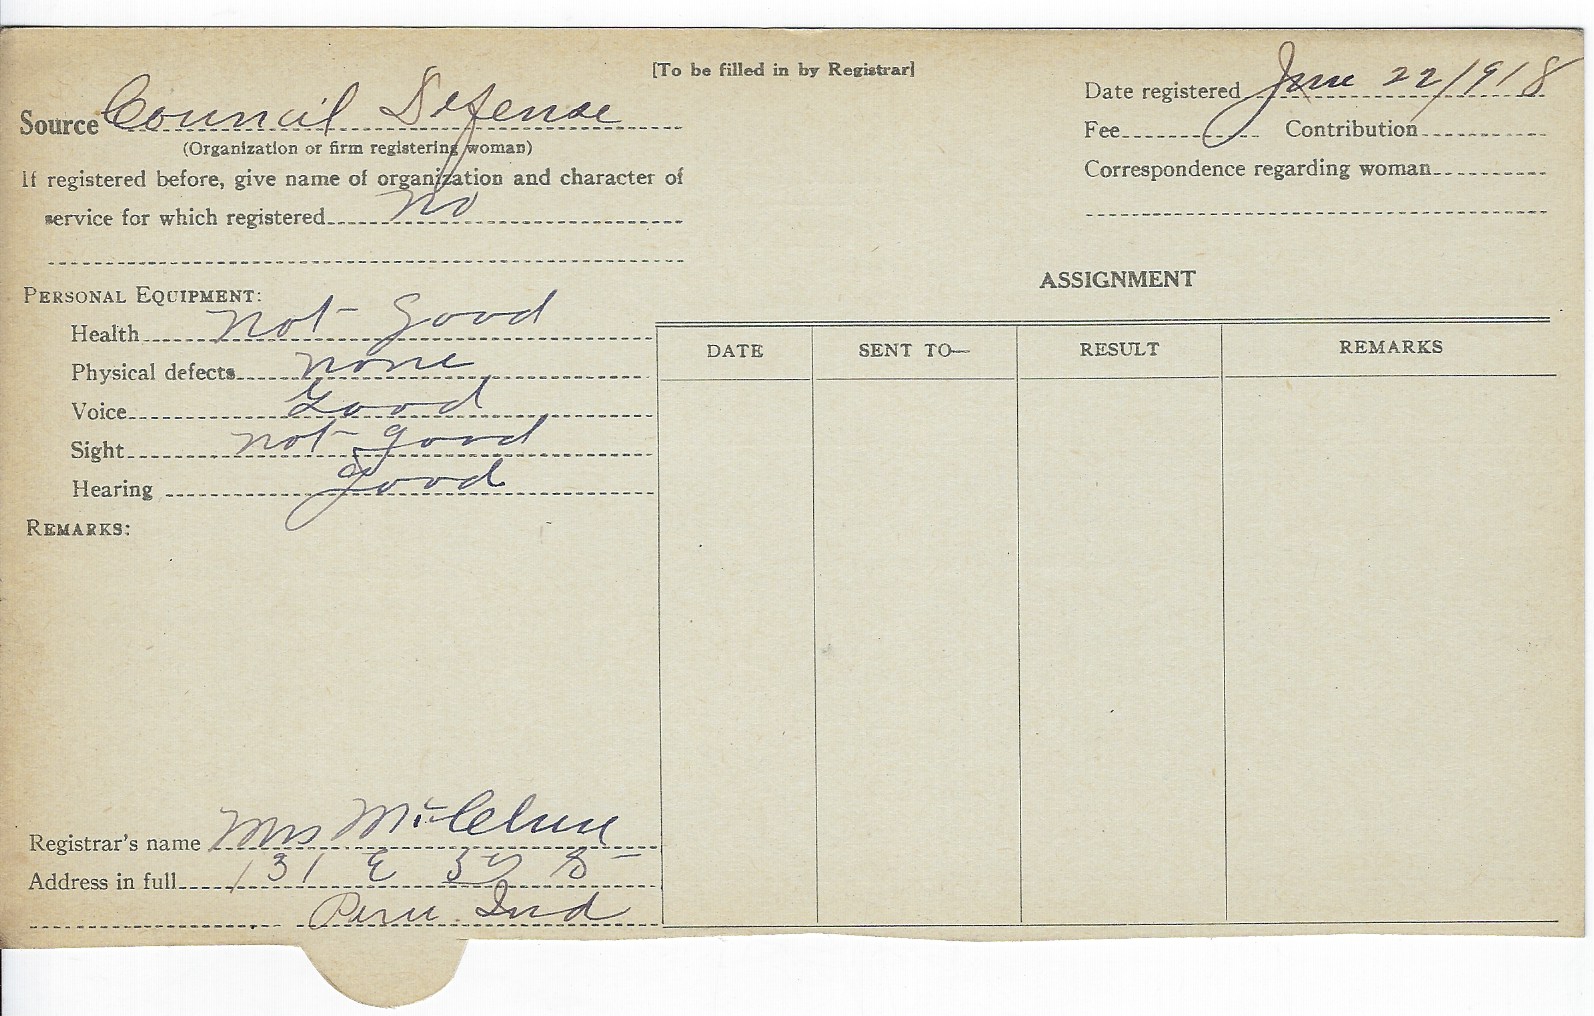 [To be filled in by Registrar]
Source Council Defense
(Organization or firm registering woman)
If registered before, give name of organization and character of
service for which registered No
Date registered June 22/918
Fee Contribution
Correspondence regarding woman
PERSONAL EQUIPMENT:
Health Not Good
Physical defects None
Voice Good
Sight not good
Hearing good
REMARKS:
ASSIGNMENT
DATE SENT TO— RESULT REMARKS
Registrar's name Mrs McClure
Address in full 131 E
Peru Ind